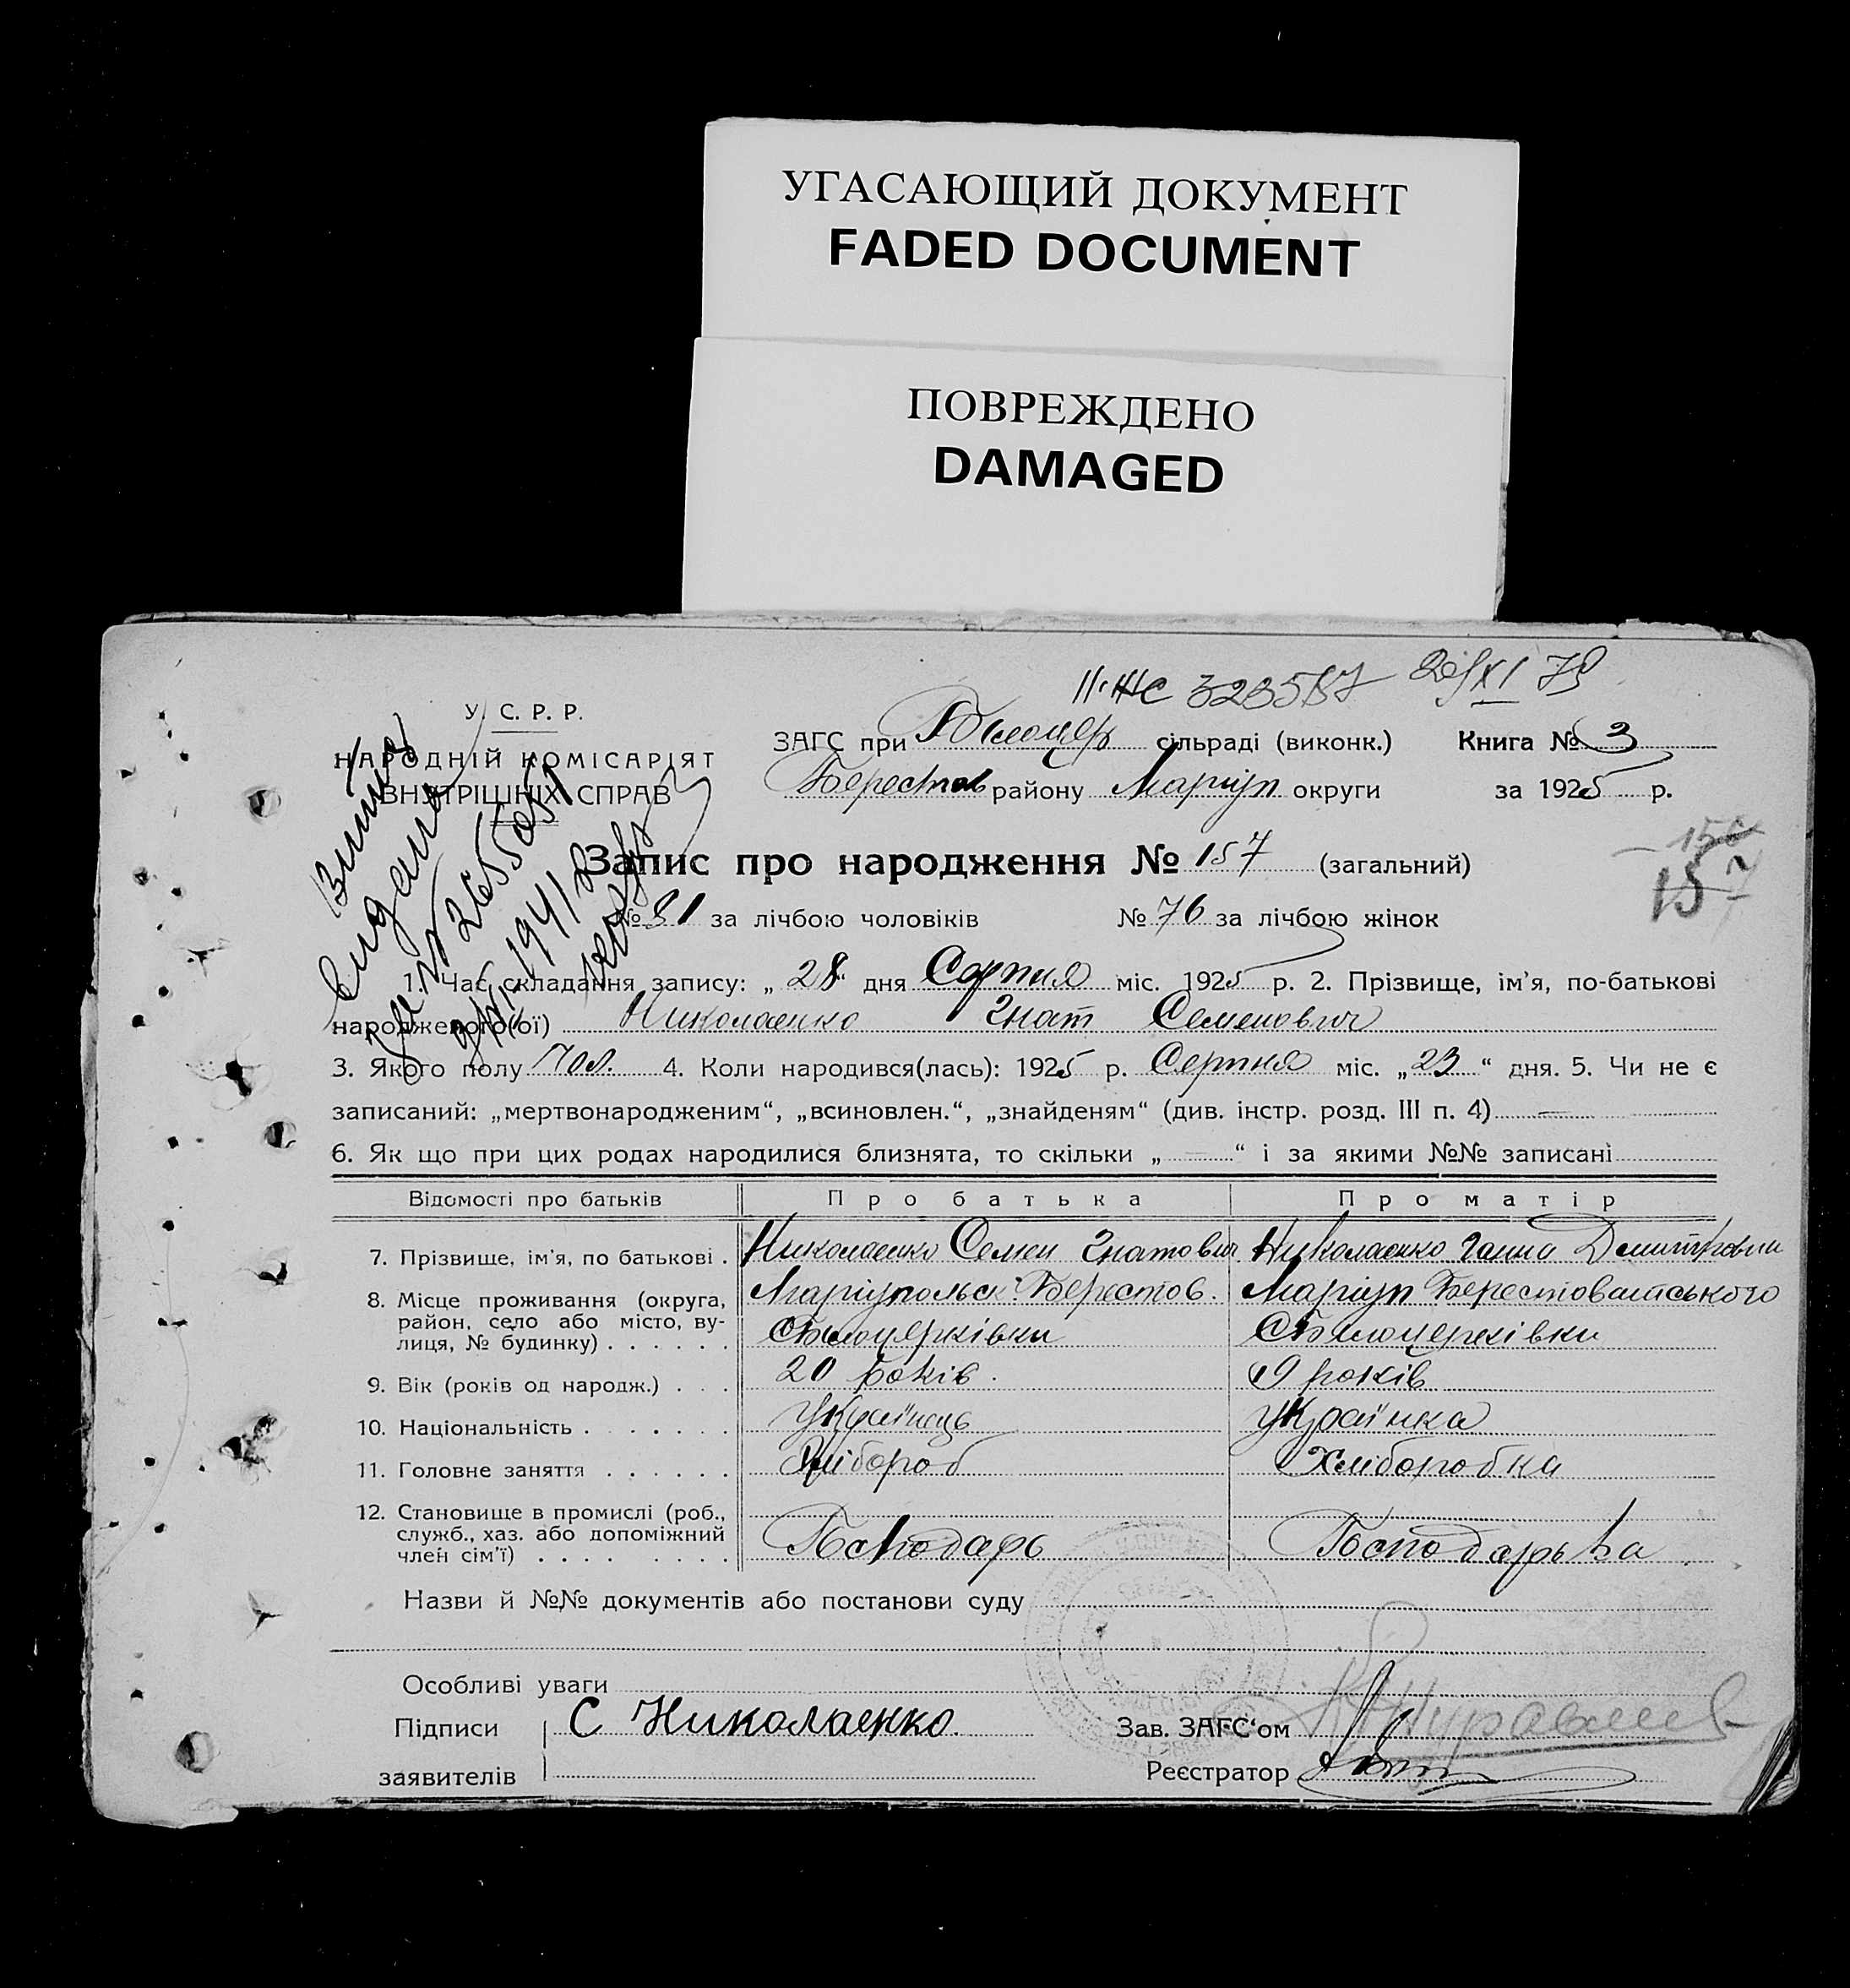 УГАСАЮЩИЙ ДОКУМЕНТ
FADED DOCUMENT
ПОВРЕЖДЕНО
DAMAGED
У. С. Р. Р.
НАРОДНІЙ КОМІСАРІЯТ
ВНУТРІШНІХ СПРАВ
ЗАГС при Білоцерк сільраді (виконк.) Книга № 3
Берестов району Маріуп округи за 1925 р.
Запис про народження № 157 (загальний)
157
№ 81 за лічбою чоловіків № 76 за лічбою жінок
1. Час складання запису: „28“ дня Серпня міс. 1925 р. 2. Прізвище, ім'я, по-батькові
народженого(ої) Николаенко Гнат Семенович
3. Якого полу Чол. 4. Коли народився(лась): 1925 р. Серпня міс. „23“ дня. 5. Чи не є
записаний: „мертвонародженим“, „всиновлен.“, „знайденям“ (див. інстр. розд. III п. 4) —
6. Як що при цих родах народилися близнята, то скільки „—“ і за якими №№ записані
Відомості про батьків Про батька Про матір
7. Прізвище, ім'я, по батькові . Николаенко Семен Гнатович Николаенко Ганна Дмитровна
8. Місце проживання (округа, район, село або місто, вулиця, № будинку) . . . . . . Маріупольск. Берестов. Маріуп Берестоватського
с Билоцерківки с Билоцерківки
9. Вік (років од народж.) . . . 20 років. 19 років
10. Національність . . . . . . . Українець Українка
11. Головне заняття . . . . . . Хлібороб Хліборобка
12. Становище в промислі (роб.,
служб., хаз. або допоміжний
член сім'ї) . . . . . . . . Господарь Господарька
Назви й №№ документів або постанови суду
Особливі уваги
Підписи С Николаенко Зав. ЗАГС‘ом
заявителів Реєстратор